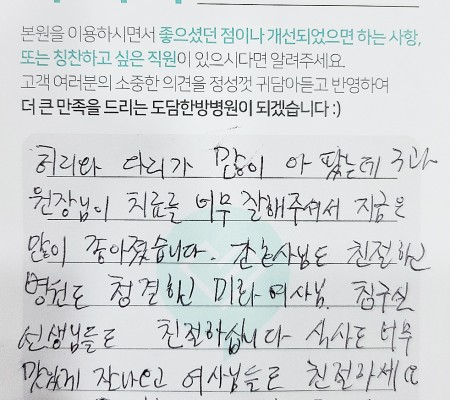 본원을 이용하시면서 좋으셨던 점이나 개선되었으면 하는 사항,
또는 칭찬하고 싶은 직원이 있으시다면 알려주세요.
고객 여러분의 소중한 의견을 정성껏 귀담아듣고 반영하여
더 큰 만족을 드리는 도담한방병원이 되겠습니다 :)
허리와 다리가 많이 아팠는데 구과
원장님이 치료를 너무 잘해주셔서 지금은
많이 좋아졌습니다. 간호사님도 친절하신
병원도 청결하신 미화여사님. 침구실
선생님들도 친절하십니다 식사도 너무
맛있게 잘나오고 여사님들도 친절하세요